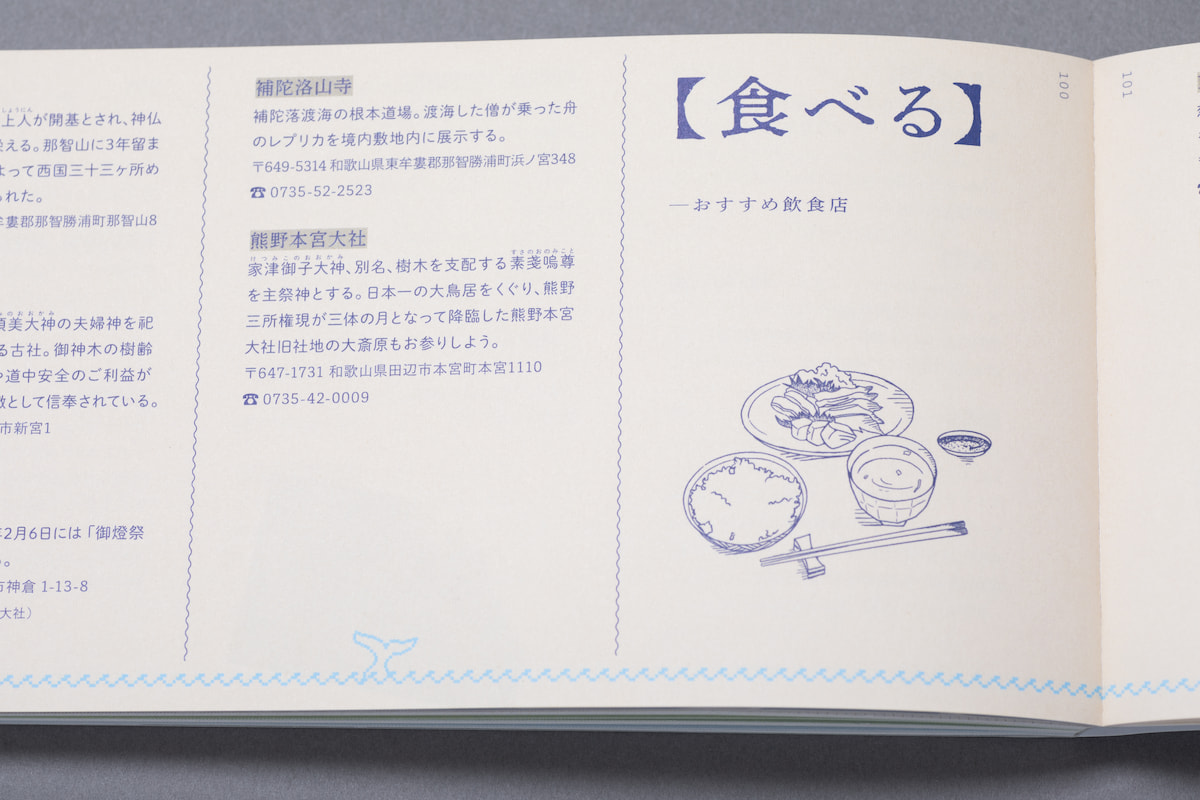 しょうにん
上人が開基とされ、神仏
える。那智山に3年留ま
よって西国三十三ヶ所め
られた。
牟婁郡那智勝浦町那智山8
みのおおかみ
須美大神の夫婦神を祀
る古社。御神木の樹齢
や道中安全のご利益が
徴として信奉されている。
市新宮1
年2月6日には「御燈祭
る。
市神倉 1-13-8
大社）
補陀洛山寺
補陀落渡海の根本道場。渡海した僧が乗った舟
のレプリカを境内敷地内に展示する。
〒649-5314 和歌山県東牟婁郡那智勝浦町浜ノ宮348
☎ 0735-52-2523
熊野本宮大社
けつみこのおおかみ すさのおのみこと
家津御子大神、別名、樹木を支配する素戔嗚尊
を主祭神とする。日本一の大鳥居をくぐり、熊野
三所権現が三体の月となって降臨した熊野本宮
大社旧社地の大斎原もお参りしよう。
〒647-1731 和歌山県田辺市本宮町本宮1110
☎ 0735-42-0009
【食べる】
—おすすめ飲食店
100
101